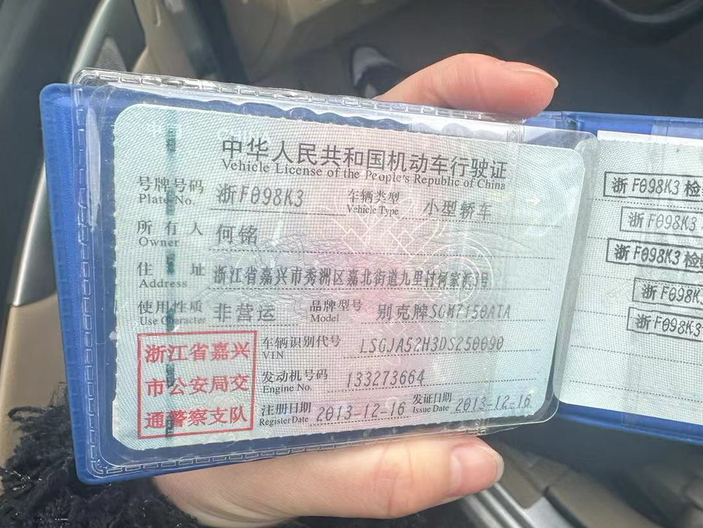 中华人民共和国机动车行驶证
Vehicle License of the People's Republic of China
号牌号码 浙F098K3 车辆类型 小型轿车
Plate No. Vehicle Type
所有人 何铭
Owner
住址 浙江省嘉兴市秀洲区嘉北街道九里村何家浜3号
Address
使用性质 非营运 品牌型号 别克牌SGM7150ATA
Use Character Model
浙江省嘉兴
市公安局交
通警察支队
车辆识别代号 LSGJA52H3DS250090
VIN
发动机号码 133273664
Engine No.
注册日期 2013-12-16 发证日期 2013-12-16
Register Date Issue Date
浙F098K3 检
浙F098K3
浙F098K3 检
浙F098K
浙F098K3